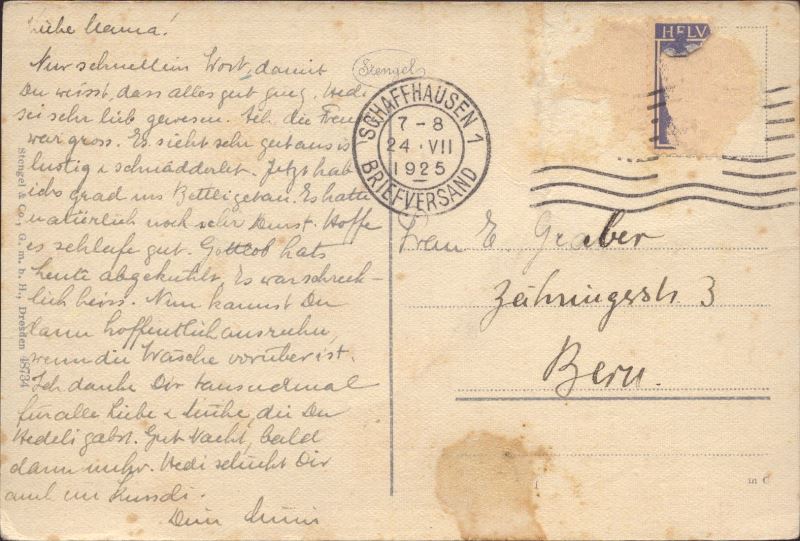 Liebe Mama!
Nur schnell ein Wort, damit
Du weisst, dass alles gut ging. Hedi
sei sehr lieb gewesen. die Freu
war gross. Es sieht sehr gut aus is
lustig & schnädderlet. Jetzt hab
ichs grad ins Bettli getan. Es hatte
natürlich noch sehr Durst. Hoffe
es schlafe gut. Gottlob hats
heute abgekühlt. Es war schreck-
lich heiss. Nun kannst Du
dann hoffentlich ausruhn,
wenn die Wäsche vorüber ist.
Ich danke Dir tausendmal
für alle Liebe & Mühe, die Du
Hedeli gabst. Gut Nacht, bald
dann mehr. Hedi schickt Dir
auch ein Kussli.
Dein
Stengel
Stengel & Co., G. m. b. H., Dresden 48734
SCHAFFHAUSEN 1
7-8
24.VII
1925
BRIEFVERSAND
HELV
Frau E. Graber
Zähringerstr. 3
Bern.